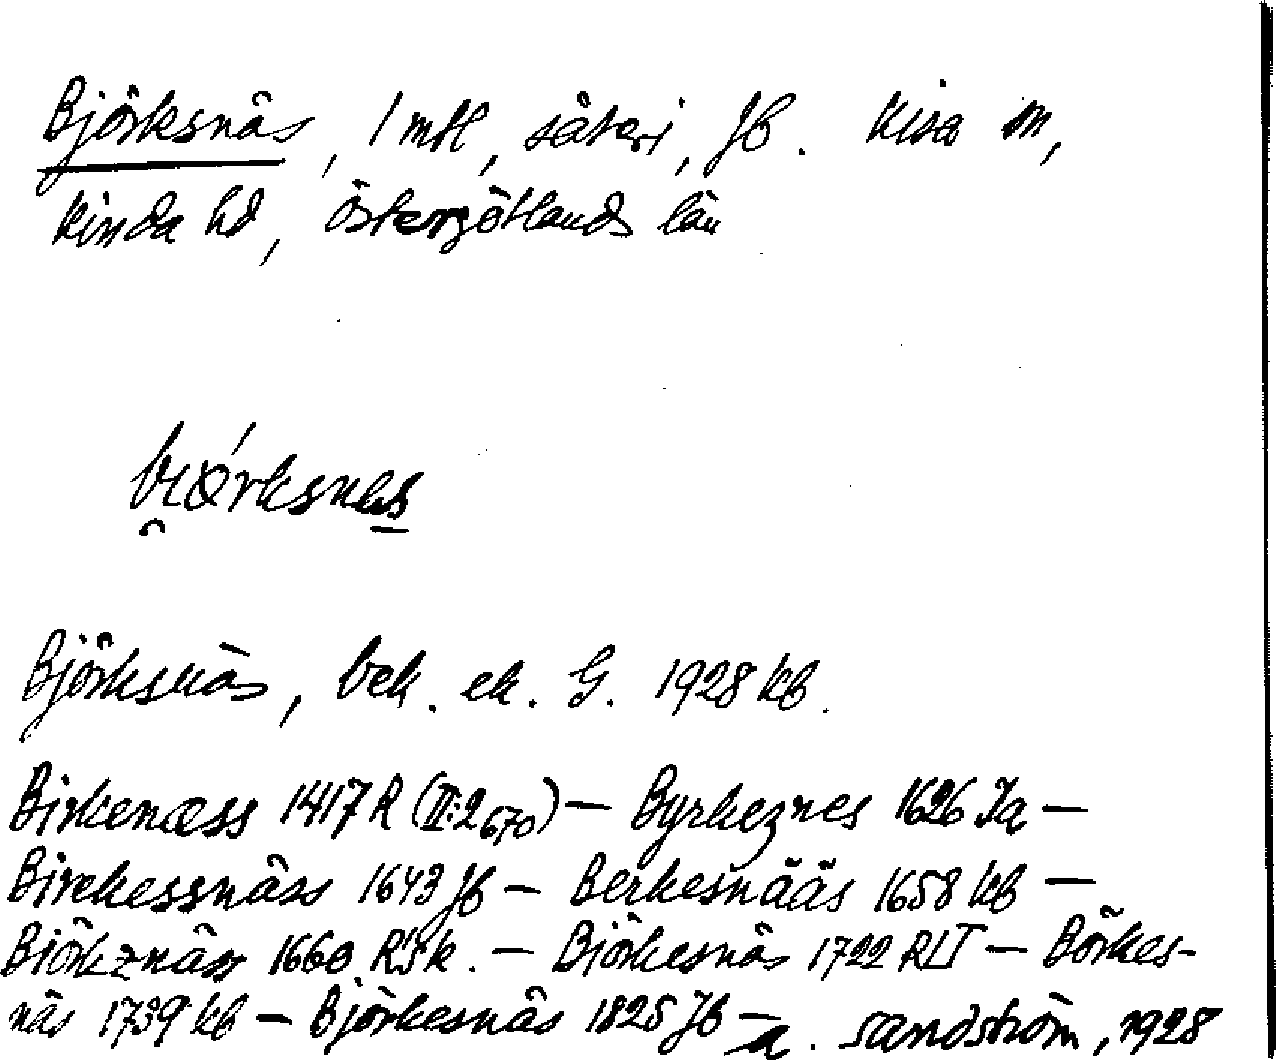 Björksnäs, 1 mtl, säteri, Jb. Kisa sn,
Kinda hd, Östergötlands län
bi̯ǿrksnes
Björksnäs, bek. ek. G. 1928 kb.
Birkenæss 1417 R (II:2 670) — Byrkeznes 1626 Jq —
Birckessnäss 1643 Jb — Berkesnääs 1658 kb —
Biörkznäss 1660 RSk. — Biörkesnäs 1722 RLT — Börkes-
näs 1739 kb — Björkesnäs 1825 Jb —
A. Sandström, 1928